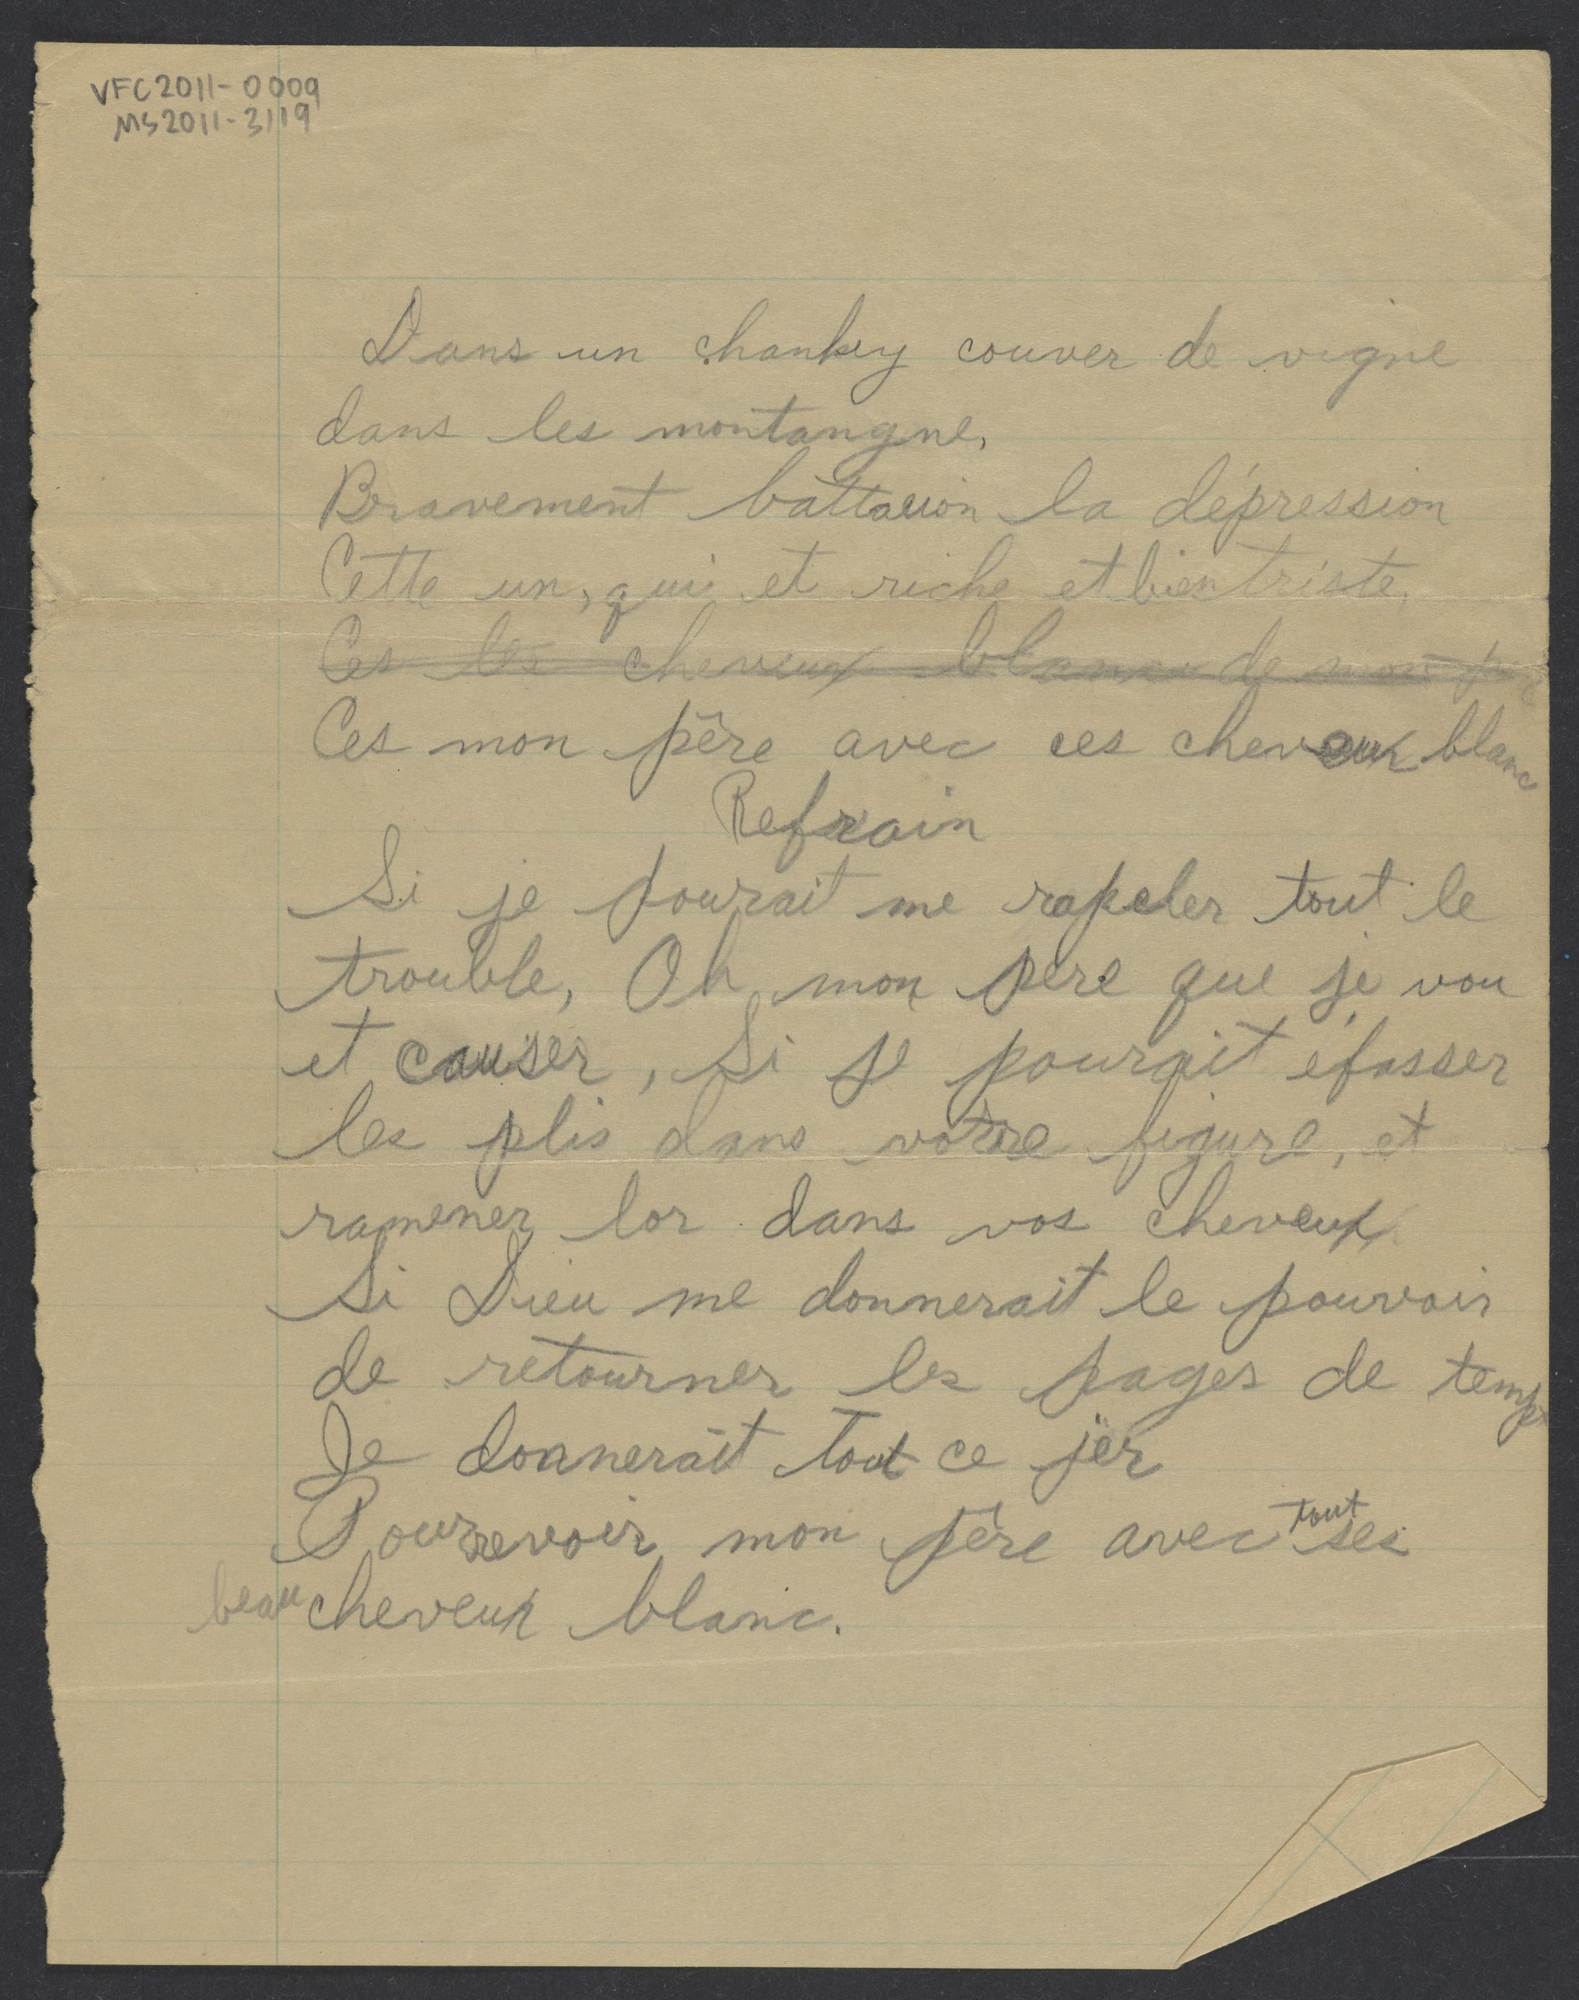 VFC2011-0009
MS2011-3119
Dans un chankey couver de vigne
dans les montangne,
Bravement battaeion la dépression
Cette un, qui et riche et bien triste,
Ces les cheveux blanc de mon père
Ces mon père avec ces cheveux blanc
Refrain
Si je pourait me rapeler tout le
trouble, Oh mon père que je vou
et causer, Si je pourait éfasser
les plis dans votre figure, et
ramener lor dans vos cheveux
Si Dieu me donnerait le pouvoir
de retourner les pages de temps
Je donnerait tout ce jer
Pour revoir mon père avec tout ses
beau cheveux blanc.